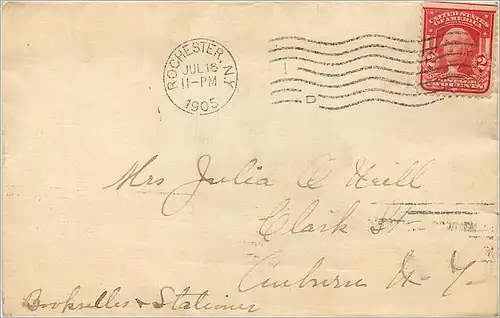 ROCHESTER, N.Y.
JUL 16
11-PM
1905
D
UNITED STATES
OF AMERICA
2 2
POSTAGE
TWO CENTS
Mrs Julia O Neill
Clark St
Auburn N-Y.
Bookseller & Stationer